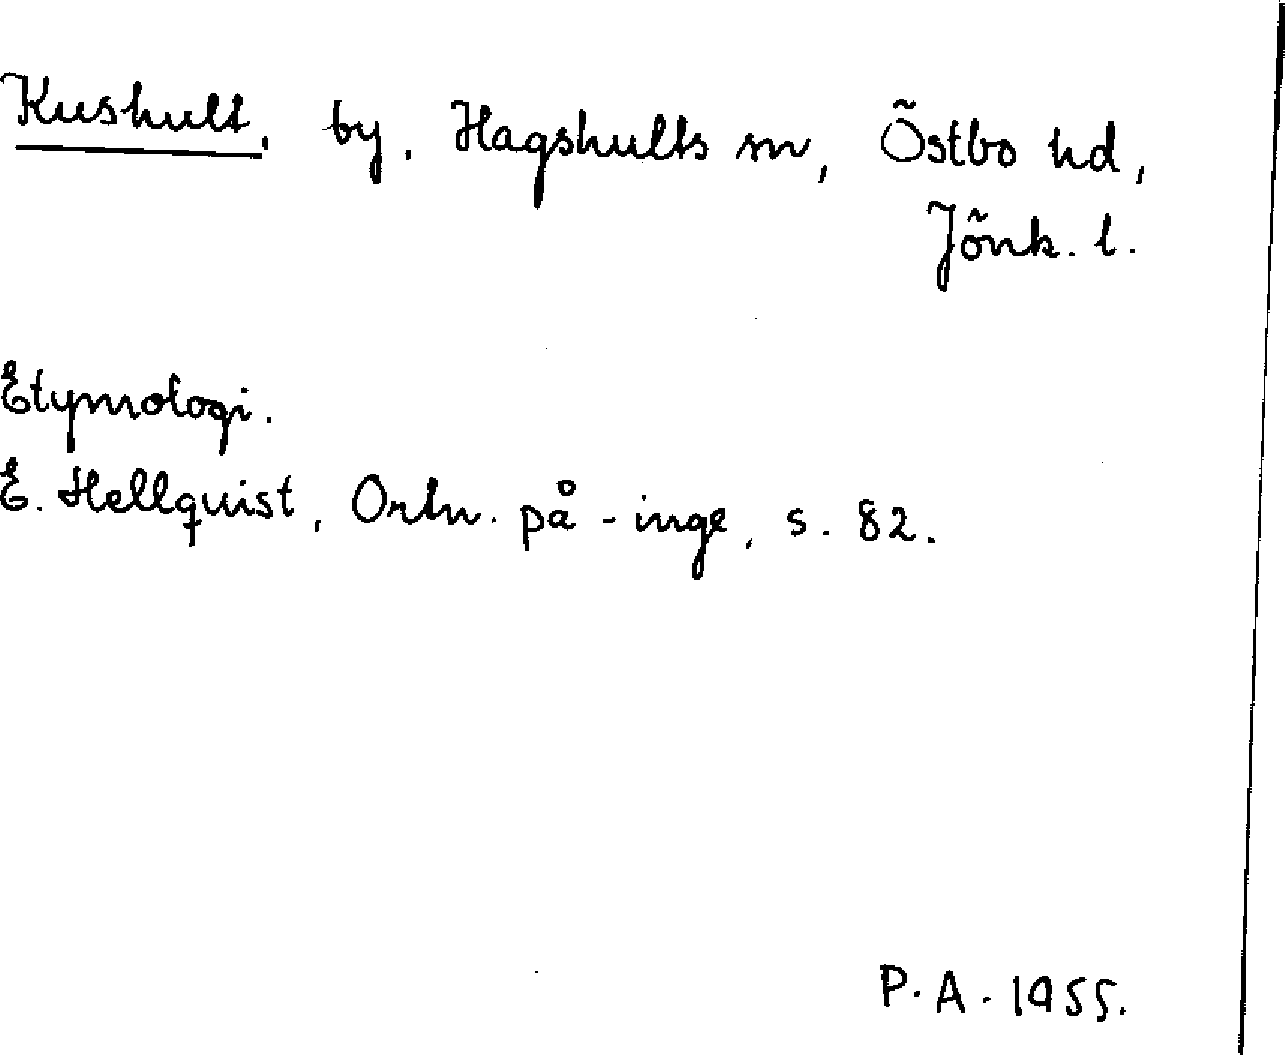 Kushult, by, Hagshults sn, Östbo hd,
Jönk. l.
Etymologi.
E. Hellquist, Ortn. på -inge, s. 82.
P. A. 1955.